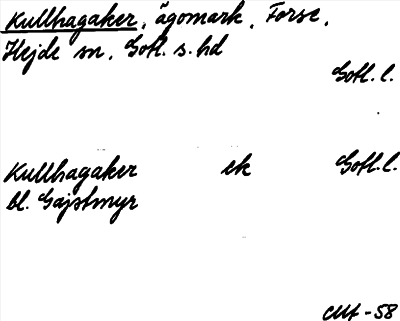 Kullhagaker, ägomark, Forse,
Hejde sn, Gotl. s. hd
Gotl. l.
Kullhagaker ek Gotl. l.
bl. Gajstmyr
-58